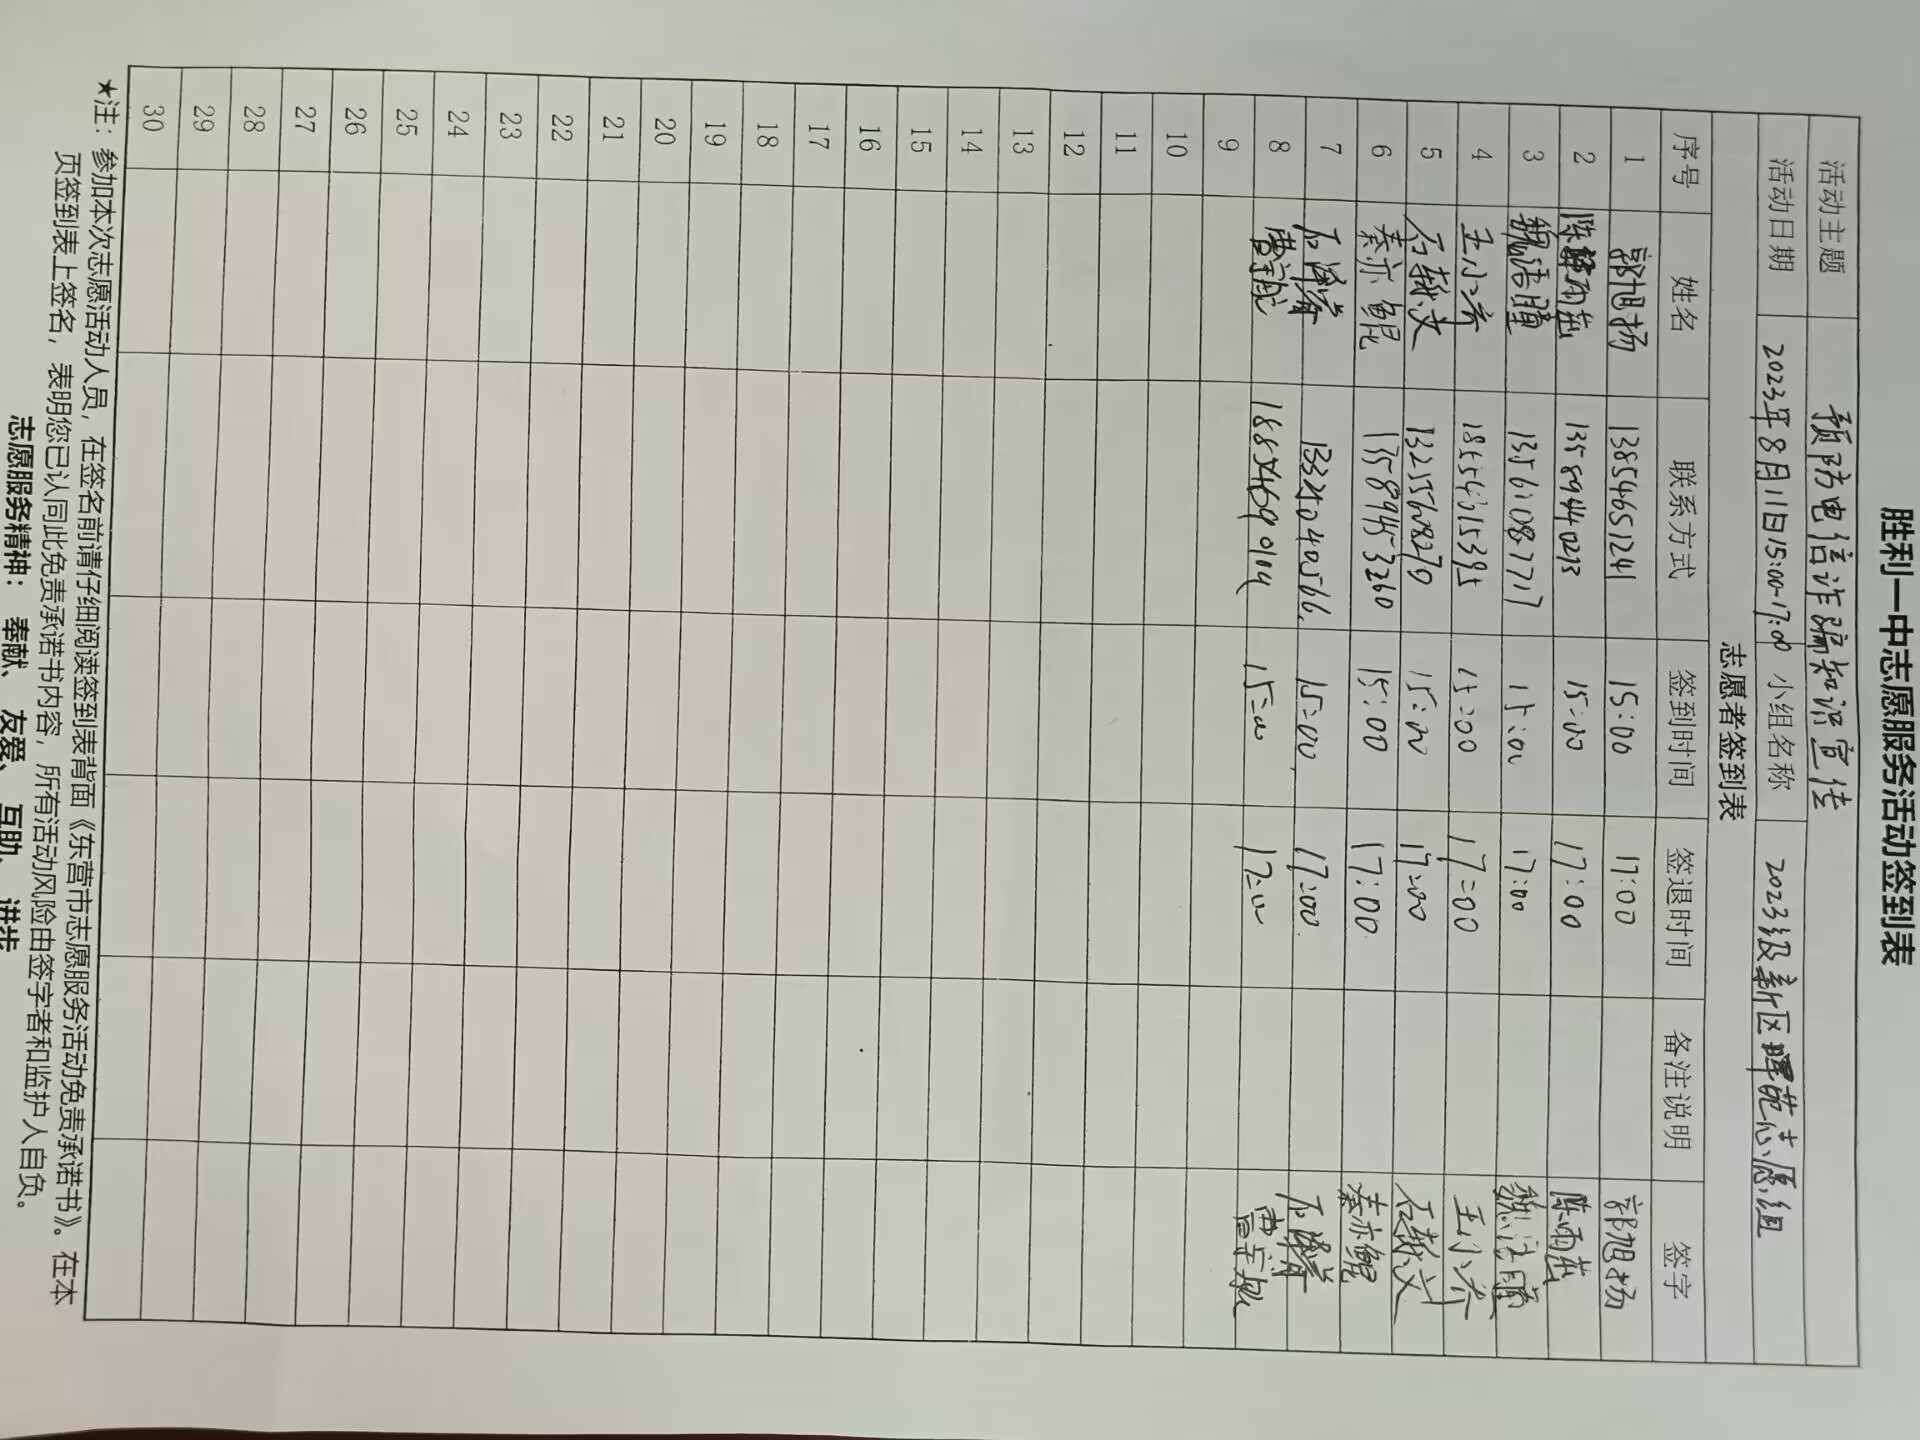 胜利一中志愿服务活动签到表
活动主题 预防电信诈骗知识宣传
活动日期 2023年8月11日15:00-17:00 小组名称 2023级新区晖苑志愿组
志愿者签到表
序号 姓名 联系方式 签到时间 签退时间 备注说明 签字
1 郭旭扬 13854651241 15:00 17:00 郭旭扬
2 13589440213 15:00 17:00
3 13561087717 15:00 17:00
4 15:00 17:00
5 13255608270 15:00 17:00
6 秦亦鲲 15:00 17:00 秦亦鲲
7 15:00 17:00
8 15:00 17:00
9
10
11
12
13
14
15
16
17
18
19
20
21
22
23
24
25
26
27
28
29
30
★注：参加本次志愿活动人员，在签名前请仔细阅读签到表背面《东营市志愿服务活动免责承诺书》。在本
页签到表上签名，表明您已认同此免责承诺书内容，所有活动风险由签字者和监护人自负。
志愿服务精神：奉献、友爱、互助、进步